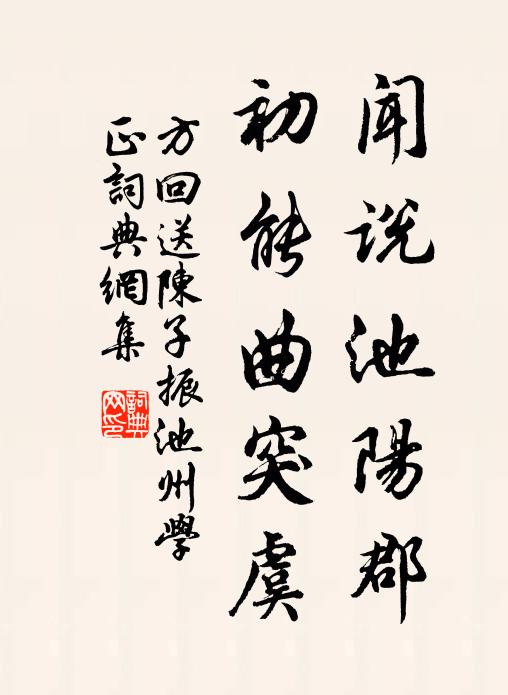 闻说池陽郡
初能曲突虞
方回送陳子振池州學
正詞典網集
詞典网印